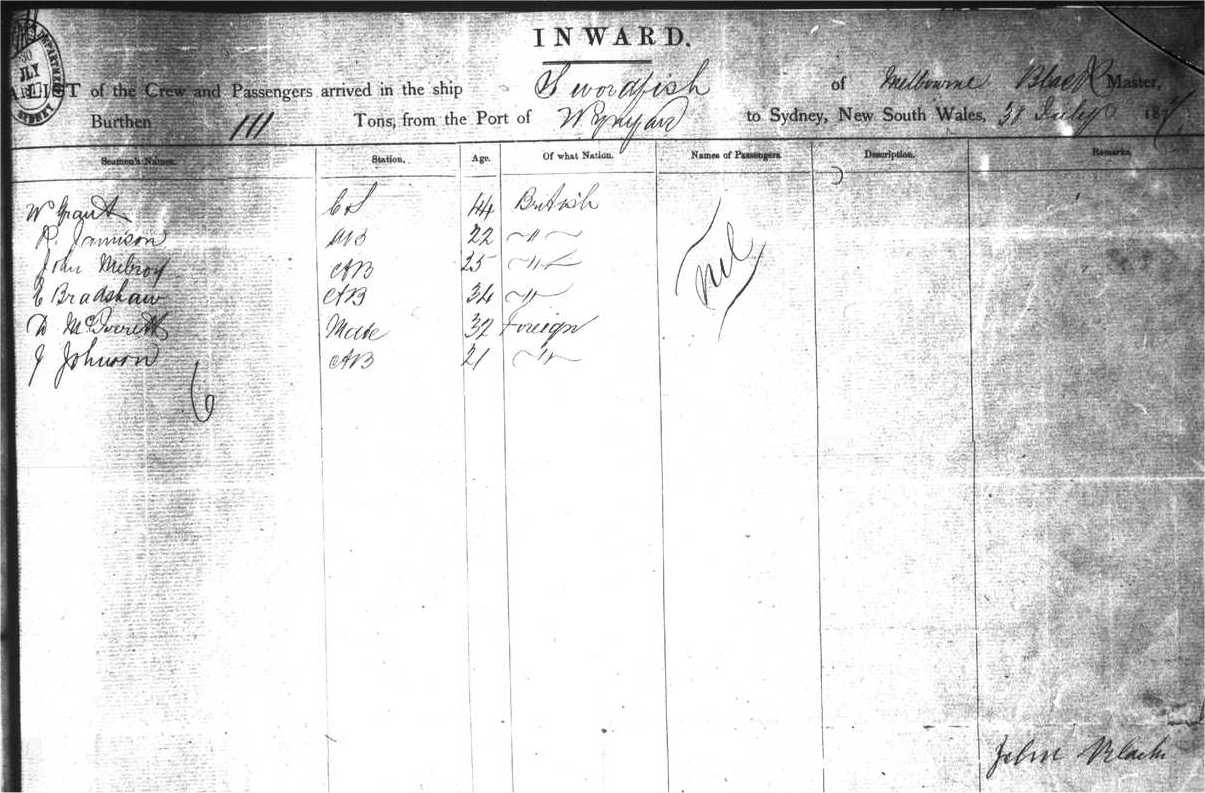 INWARD.
LIST of the Crew and Passengers arrived in the ship Swordfish of Melbourne Black Master,
Burthen 111 Tons, from the Port of Wynyard to Sydney, New South Wales, July 18
Seamen's Names. Station. Age. Of what Nation. Names of Passengers. Description. Remarks.
W Grant 44 British
R. Jamison AB 22 〃
John McIlroy AB 25 〃
Bradshaw AB 34 〃
D Mate 32 Foreign
J Johnson AB 21 〃
nil
6
John Black
JULY
SYDNEY